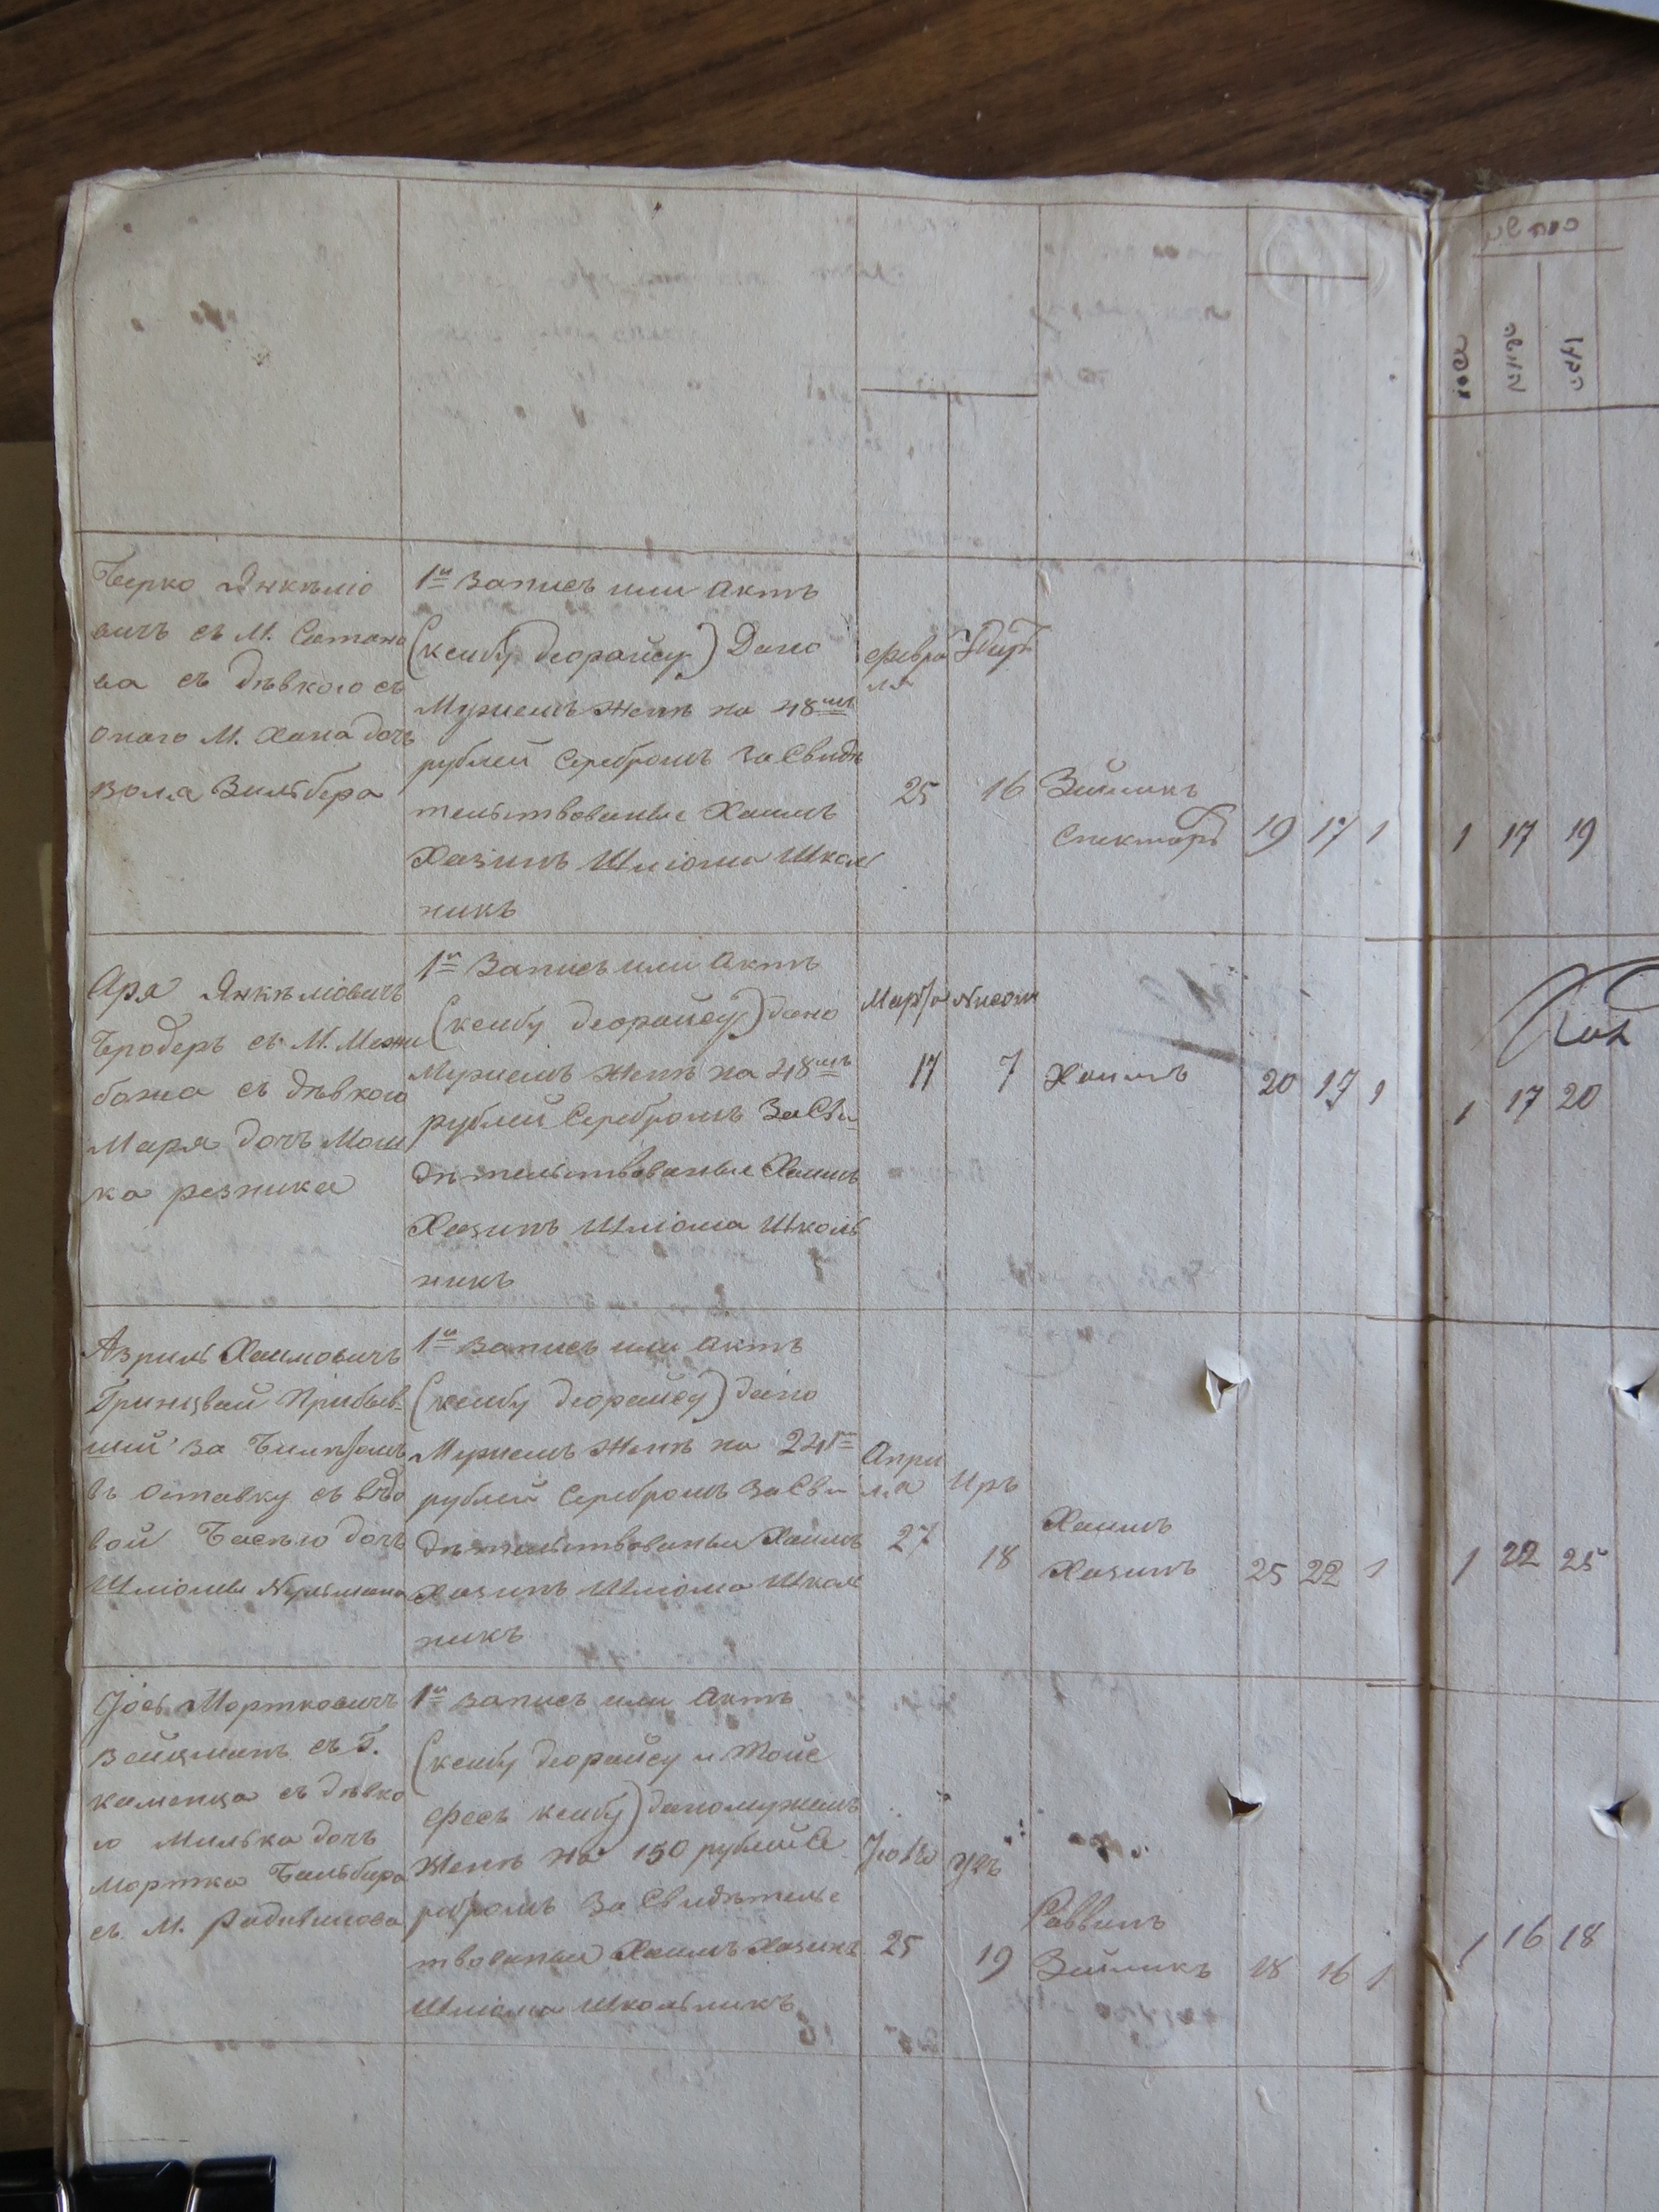 Берко Янкелio
вичъ съ М. Сатано
ва съ дѣвкою съ
оного М. Хана дочъ
Вола Зильбера
1я Запись или актъ
(ксибу деорайсу) Дано
Мужемъ женѣ на 48мъ
рублей Серебромъ За Свидѣ
тельствованые Хаимъ
Хазинъ Шліома Школ
никъ
февра
ля
25
Удиръ
16
Зейликъ
Спекторъ
19 17 1
1 17 19
Аря Янкеліовичъ
Бродеръ съ М. Межи
божа съ дѣвкою
Маря дочъ Мош
ка резника
1я Запись или актъ
(ксибу деорайсу) дано
Мужемъ женѣ на 48мъ
рублей Серебромъ За Сви
дѣтельствованые Хаимъ
Хазинъ Шліома Школь
никъ
Марта
17
Нисонъ
7
Хаимъ
20 17 1
1 17 20
Азриль Хаимовичъ
Гринцвай Прибыв-
ший за Билетомъ
въ отставку съ вдо
вой Басею дочъ
Шліомы
1я запись или актъ
(ксибу деорайсу) дано
Мужемъ женѣ на 24
рублей Серебромъ За Сви
дѣтельствованыи Хаимъ
Хазинъ Шліома Школ
никъ
Апри
ля
27
Иръ
18
Хаимъ
Хазинъ
25 22 1
1 22 25
Іось Мортковичъ
Вейцманъ съ Г.
каменца съ дѣвко
ю Милька дочъ
Мортка
съ М.
1я запись или актъ
(ксибу деорайсу и Тойс
фесъ ксибу) дано мужемъ
женѣ на 150 рублей Се
ребромъ За Свидѣтельс
твованыи Хаимъ Хазинъ
Шліома Школьникъ
25
19
Раввинъ
Зейликъ
18 16 1
1 16 18